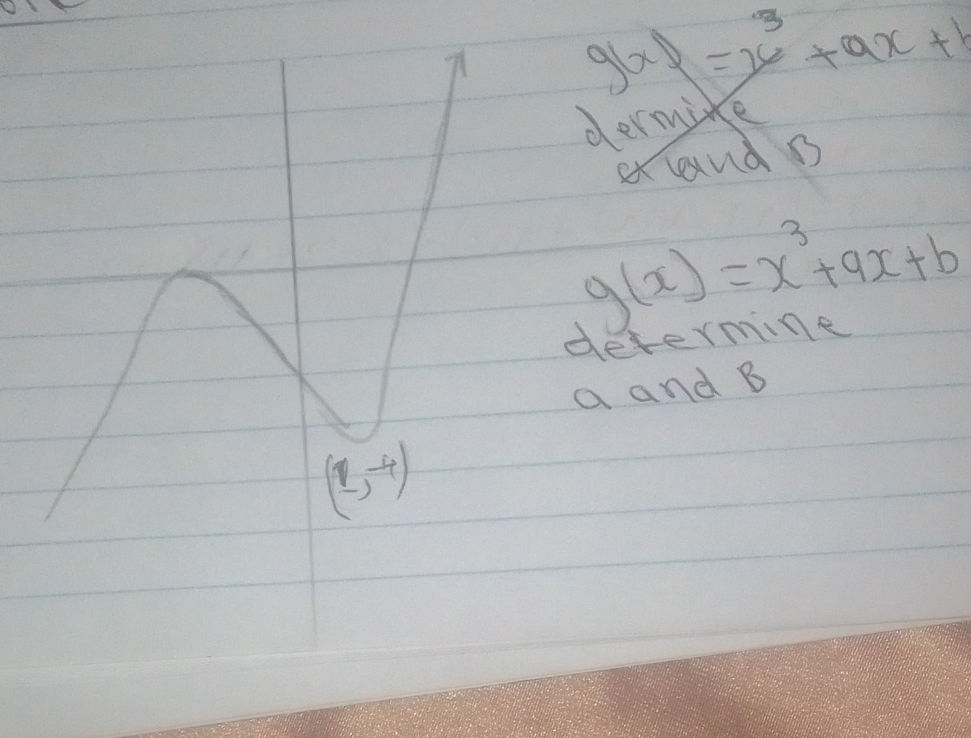 g(x) = x³ + ax + b
dermine
a and B
g(x) = x³ + ax + b
determine
a and B
(1, -4)